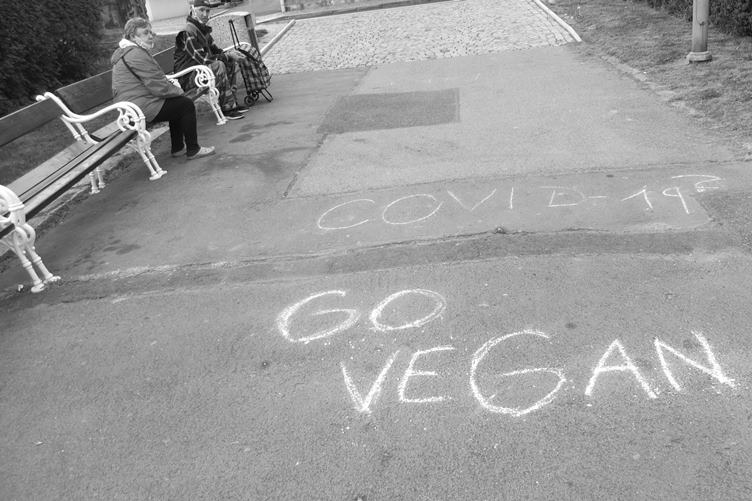 COVID-19?
GO
VEGAN